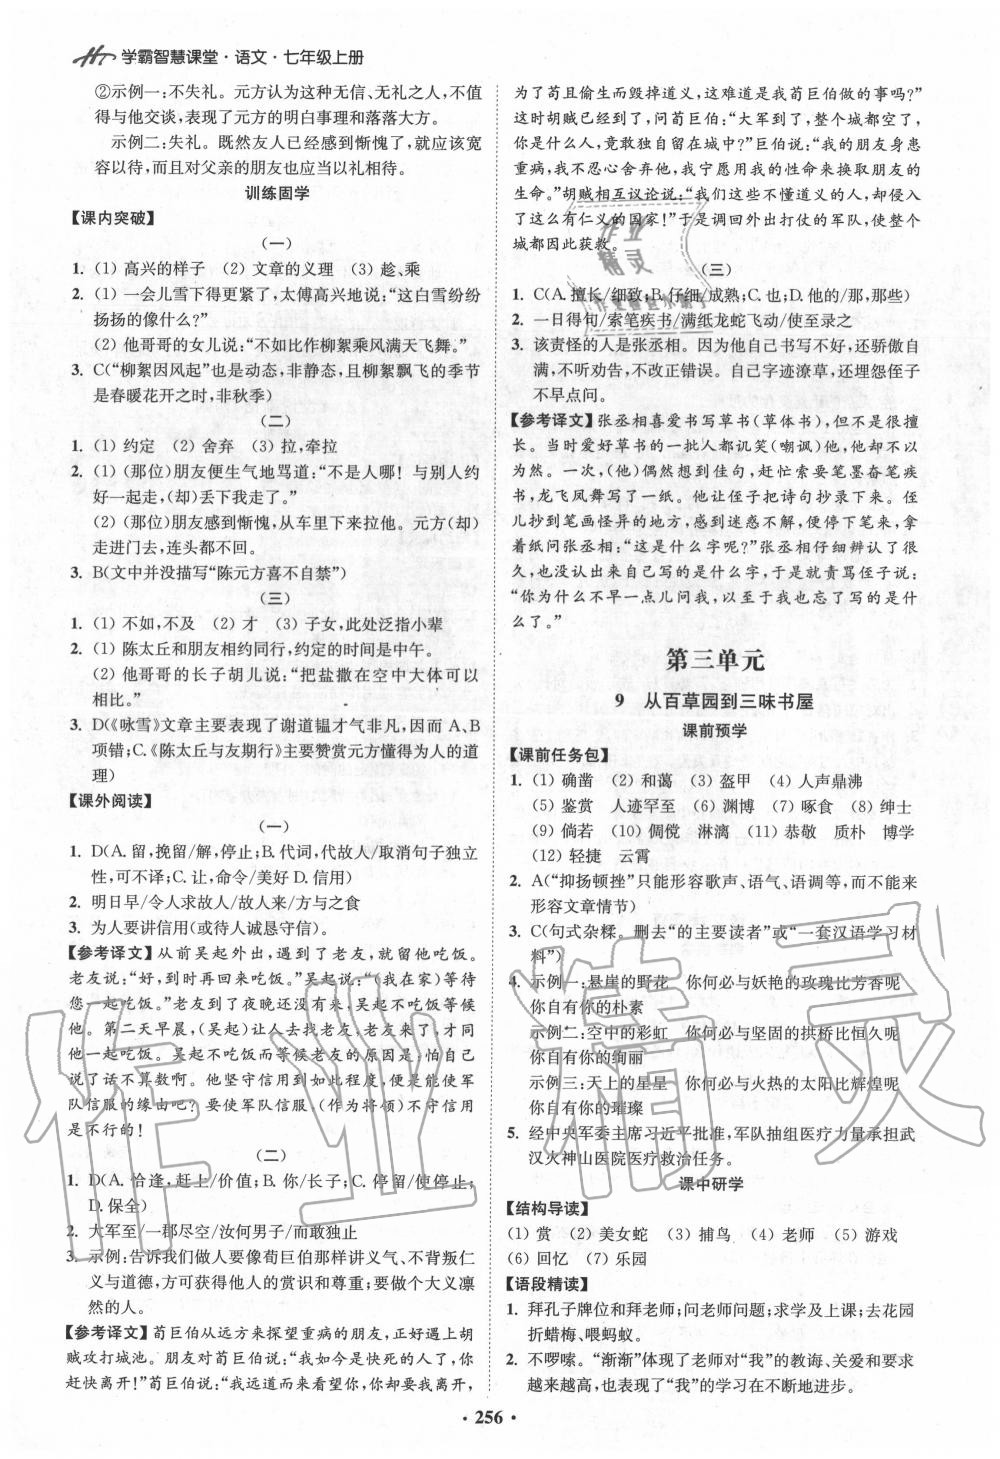 学霸智慧课堂·语文·七年级上册
②示例一:不失礼。元方认为这种无信、无礼之人,不值
得与他交谈,表现了元方的明白事理和落落大方。
示例二:失礼。既然友人已经感到惭愧了,就应该宽
容以待,而且对父亲的朋友也应当以礼相待。
训练固学
【课内突破】
(一)
1. (1) 高兴的样子 (2) 文章的义理 (3) 趁、乘
2. (1) 一会儿雪下得更紧了,太傅高兴地说:“这白雪纷纷
扬扬的像什么?”
(2) 他哥哥的女儿说:“不如比作柳絮乘风满天飞舞。”
3. C(“柳絮因风起”也是动态,非静态,且柳絮飘飞的季节
是春暖花开之时,非秋季)
(二)
1. (1) 约定 (2) 舍弃 (3) 拉,牵拉
2. (1) (那位)朋友便生气地骂道:“不是人哪!与别人约
好一起走,(却)丢下我走了。”
(2) (那位)朋友感到惭愧,从车里下来拉他。元方(却)
走进门去,连头都不回。
3. B(文中并没描写“陈元方喜不自禁”)
(三)
1. (1) 不如,不及 (2) 才 (3) 子女,此处泛指小辈
2. (1) 陈太丘和朋友相约同行,约定的时间是中午。
(2) 他哥哥的长子胡儿说:“把盐撒在空中大体可以
相比。”
3. D(《咏雪》文章主要表现了谢道韫才气非凡,因而 A、B
项错;C.《陈太丘与友期行》主要赞赏元方懂得为人的道
理)
【课外阅读】
(一)
1. D(A. 留,挽留/解,停止;B. 代词,代故人/取消句子独立
性,可不译;C. 让,命令/美好 D. 信用)
2. 明日早/令人求故人/故人来/方与之食
3. 为人要讲信用(或待人诚恳守信)。
【参考译文】从前吴起外出,遇到了老友,就留他吃饭。
老友说:“好,到时再回来吃饭。”吴起说:“(我在家)等待
您一起吃饭。”老友到了夜晚还没有来,吴起不吃饭等候
他。第二天早晨,(吴起)让人去找老友,老友来了,才同
他一起吃饭。吴起不吃饭而等候老友的原因是,怕自己
说了话不算数啊。他坚守信用到如此程度,便是能使军
队信服的缘由吧?要使军队信服,(作为将领)不守信用
是不行的!
(二)
1. D(A. 恰逢,赶上/价值;B. 你/长子;C. 停止/使停止;
D. 保全)
2. 大军至/一郡尽空/汝何男子/而敢独止
3. 示例:告诉我们做人要像荀巨伯那样讲义气、不背叛仁
义与道德,方可获得他人的赏识和尊重;要做个大义凛
然的人。
【参考译文】荀巨伯从远方来探望重病的朋友,正好遇上胡
贼攻打城池。朋友对荀巨伯说:“我如今是快死的人了,你
赶快离开!”荀巨伯说:“我远道而来看望你,你却要我离开,
为了苟且偷生而毁掉道义,这难道是我荀巨伯做的事吗?”
这时胡贼已经到了,问荀巨伯:“大军到了,整个城都空了,
你是什么人,竟敢独自留在城中?”巨伯说:“我的朋友身患
重病,我不忍心舍弃他,我宁愿用我的性命来换取朋友的
生命。”胡贼相互议论说:“我们这些不懂道义的人,却侵入
了这么有仁义的国家!”于是调回外出打仗的军队,使整个
城都因此获救。
(三)
1. C(A. 擅长/细致;B. 仔细/成熟;C. 也;D. 他的/那,那些)
2. 一日得句/索笔疾书/满纸龙蛇飞动/使侄录之
3. 该责怪的人是张丞相。因为他自己书写不好,还骄傲自
满,不听劝告,不改正错误。自己字迹潦草,还埋怨侄子
不早点问。
【参考译文】张丞相喜爱书写草书(草体书),但是不很擅
长。当时爱好草书的一批人都讥笑(嘲讽)他,他却不以
为然。一次,(他)偶然想到佳句,赶忙索要笔墨奋笔疾
书,龙飞凤舞写了一纸。他让侄子把诗句抄录下来。侄
儿抄到笔画怪异的地方,感到迷惑不解,便停下笔来,拿
着纸问张丞相:“这是什么字呢?”张丞相仔细辨认了很
久,也没认出来自己写的是什么字,于是就责骂侄子说:
“你为什么不早一点儿问我,以至于我也忘了写的是什
么了。”
第三单元
9 从百草园到三味书屋
课前预学
【课前任务包】
1. (1) 确凿 (2) 和蔼 (3) 盔甲 (4) 人声鼎沸
(5) 鉴赏 人迹罕至 (6) 渊博 (7) 啄食 (8) 绅士
(9) 倘若 (10) 倜傥 淋漓 (11) 恭敬 质朴 博学
(12) 轻捷 云霄
2. A(“抑扬顿挫”只能形容歌声、语气、语调等,而不能来
形容文章情节)
3. C(句式杂糅。删去“的主要读者”或“一套汉语学习材
料”)
4. 示例一:悬崖的野花 你何必与妖艳的玫瑰比芳香呢
你自有你的朴素
示例二:空中的彩虹 你何必与坚固的拱桥比恒久呢
你自有你的绚丽
示例三:天上的星星 你何必与火热的太阳比辉煌呢
你自有你的璀璨
5. 经中央军委主席习近平批准,军队抽组医疗力量承担武
汉火神山医院医疗救治任务。
课中研学
【结构导读】
(1) 赏 (2) 美女蛇 (3) 捕鸟 (4) 老师 (5) 游戏
(6) 回忆 (7) 乐园
【语段精读】
1. 拜孔子牌位和拜老师;问老师问题;求学及上课;去花园
折蜡梅、喂蚂蚁。
2. 不啰嗦。“渐渐”体现了老师对“我”的教诲、关爱和要求
越来越高,也表现了“我”的学习在不断地进步。
· 256 ·
作业精灵
作业精灵